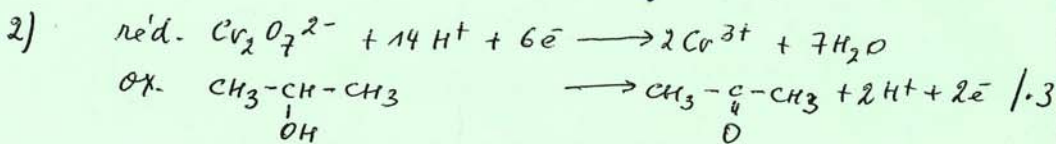 2) réd. Cr₂O₇²⁻ + 14 H⁺ + 6ē ⟶ 2Cr³⁺ + 7H₂O
ox. CH₃-CH-CH₃ ⟶ CH₃-C-CH₃ + 2H⁺ + 2ē /.3
OH O